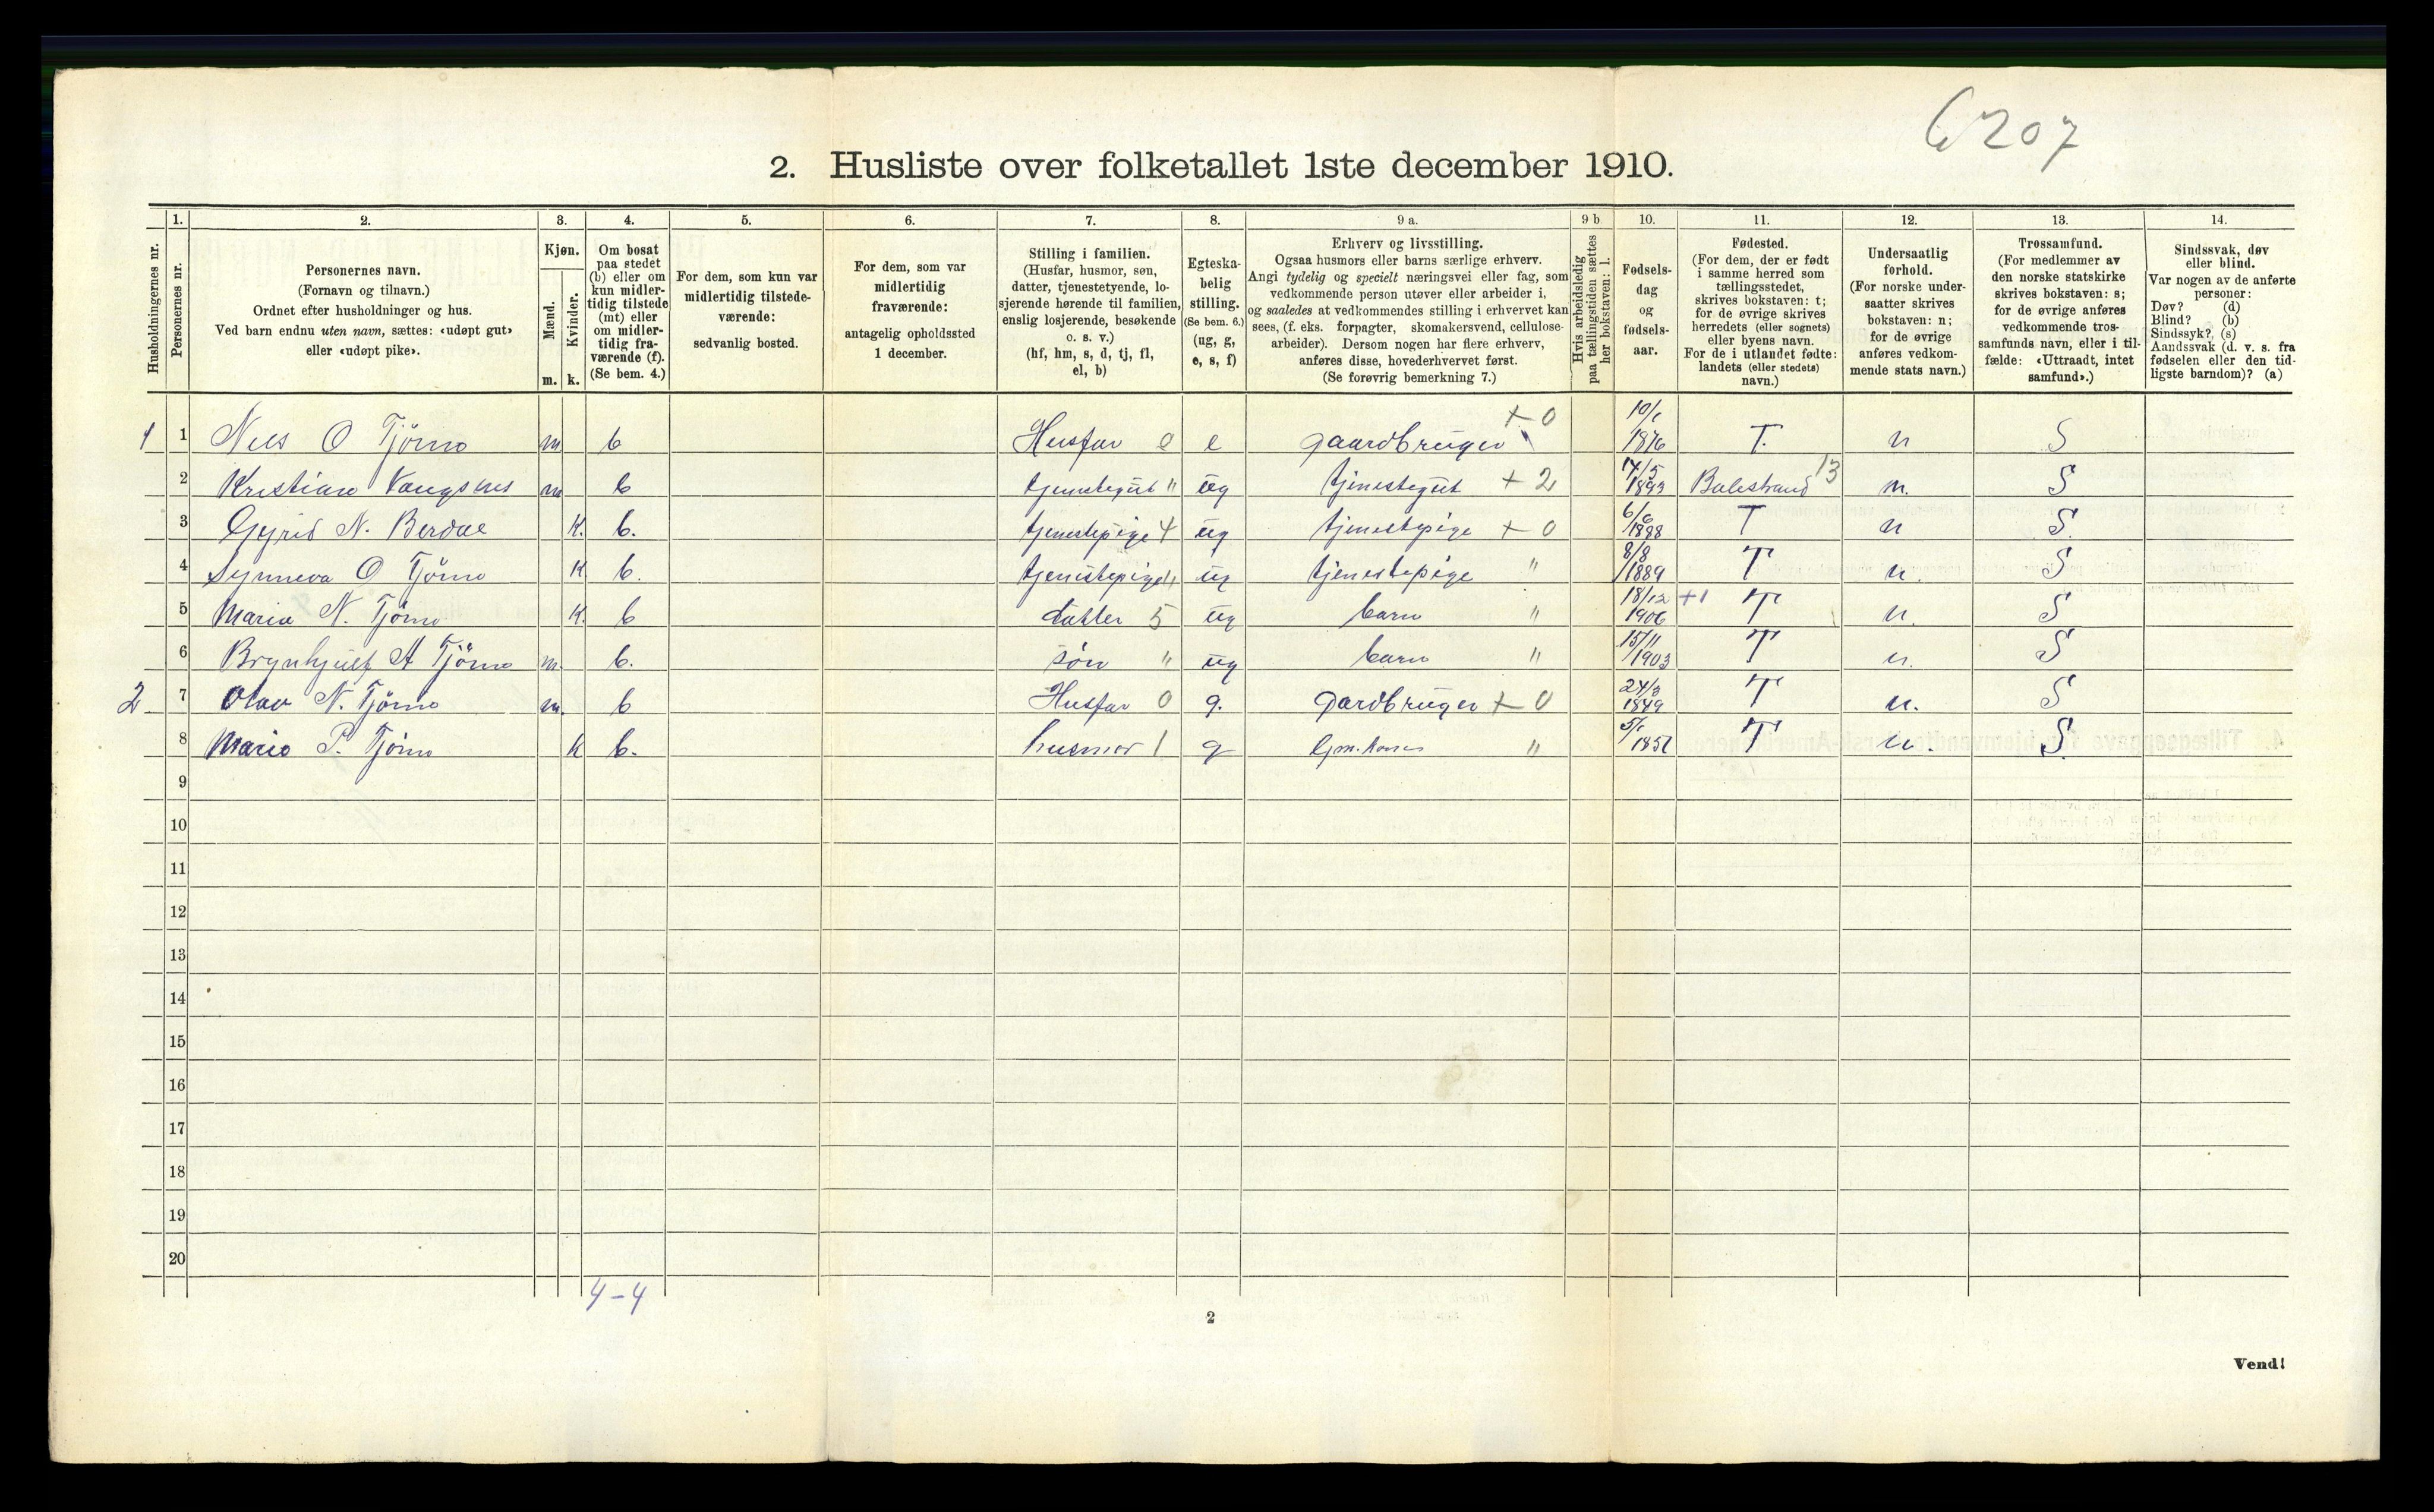 6207
2. Husliste over folketallet 1ste december 1910.
Husholdningernes nr.
1.
Personernes nr.
2.
Personernes navn.
(Fornavn og tilnavn.)
Ordnet efter husholdninger og hus.
Ved barn endnu uten navn, sættes: «udøpt gut»
eller «udøpt pike».
3.
Kjøn.
Mænd.
Kvinder.
m. k.
4.
Om bosat
paa stedet
(b) eller om
kun midler-
tidig tilstede
(mt) eller
om midler-
tidig fra-
værende (f).
(Se bem. 4.)
5.
For dem, som kun var
midlertidig tilstede-
værende:
sedvanlig bosted.
6.
For dem, som var
midlertidig
fraværende:
antagelig opholdssted
1 december.
7.
Stilling i familien.
(Husfar, husmor, søn,
datter, tjenestetyende, lo-
sjerende hørende til familien,
enslig losjerende, besøkende
o. s. v.)
(hf, hm, s, d, tj, fl,
el, b)
8.
Egteska-
belig
stilling.
(Se bem. 6.)
(ug, g,
e, s, f)
9 a.
Erhverv og livsstilling.
Ogsaa husmors eller barns særlige erhverv.
Angi tydelig og specielt næringsvei eller fag, som
vedkommende person utøver eller arbeider i,
og saaledes at vedkommendes stilling i erhvervet kan
sees, (f. eks. forpagter, skomakersvend, cellulose-
arbeider). Dersom nogen har flere erhverv,
anføres disse, hovederhvervet først.
(Se forøvrig bemerkning 7.)
9 b
Hvis arbeidsledig
paa tællingstiden sættes
her bokstaven: l.
10.
Fødsels-
dag
og
fødsels-
aar.
11.
Fødested.
(For dem, der er født
i samme herred som
tællingsstedet,
skrives bokstaven: t;
for de øvrige skrives
herredets (eller sognets)
eller byens navn.
For de i utlandet fødte:
landets (eller stedets)
navn.)
12.
Undersaatlig
forhold.
(For norske under-
saatter skrives
bokstaven: n;
for de øvrige
anføres vedkom-
mende stats navn.)
13.
Trossamfund.
(For medlemmer av
den norske statskirke
skrives bokstaven: s;
for de øvrige anføres
vedkommende tros-
samfunds navn, eller i til-
fælde: «Uttraadt, intet
samfund».)
14.
Sindssvak, døv
eller blind.
Var nogen av de anførte
personer:
Døv? (d)
Blind? (b)
Sindssyk? (s)
Aandssvak (d. v. s. fra
fødselen eller den tid-
ligste barndom)? (a)
1 1 Nils O Tjömo m b Husfar 0 e gaardbruger + 0 10/1 1876 T. n S
2 Kristian Vangsnes m b tjenestegut " ug tjenestegut + 2 14/5 1893 Balestrand 13 n. S
3 Gyrid N. Berdal K. b. tjenestepige 4 ug tjenestepige + 0 6/6 1888 T n S.
4 Synneva O Tjömo K b. tjenestepige " ug tjenestepige " 8/8 1889 T n. S
5 Maria N. Tjömo K. b datter 5 ug barn " 18/12 1906 +1 T n. S
6 Brynhjulf A Tjömo m. b. søn " ug barn " 15/11 1903 T n. S
2 7 Olav N. Tjömo m. b Husfar 0 g. Gardbruger + 0 24/3 1849 T n. S
8 Maria P. Tjömo K b. husmor 1 g " 5/1 T n. S.
9
10
11
12
13
14
15
16
17
18
19
20
4 - 4
2
Vend!